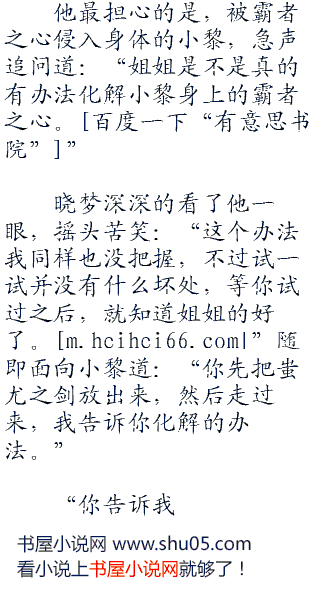 他最担心的是，被霸者
之心侵入身体的小黎，急声
追问道：“姐姐是不是真的
有办法化解小黎身上的霸者
之心。[百度一下“有意思书
院”]”
晓梦深深的看了他一
眼，摇头苦笑：“这个办法
我同样也没把握，不过试一
试并没有什么坏处，等你试
过之后，就知道姐姐的好
了。[m.hcihci66.com|”随
即面向小黎道：“你先把蚩
尤之剑放出来，然后走过
来，我告诉你化解的办
法。”
“你告诉我
书屋小说网 www.shu05.com
看小说上书屋小说网就够了！